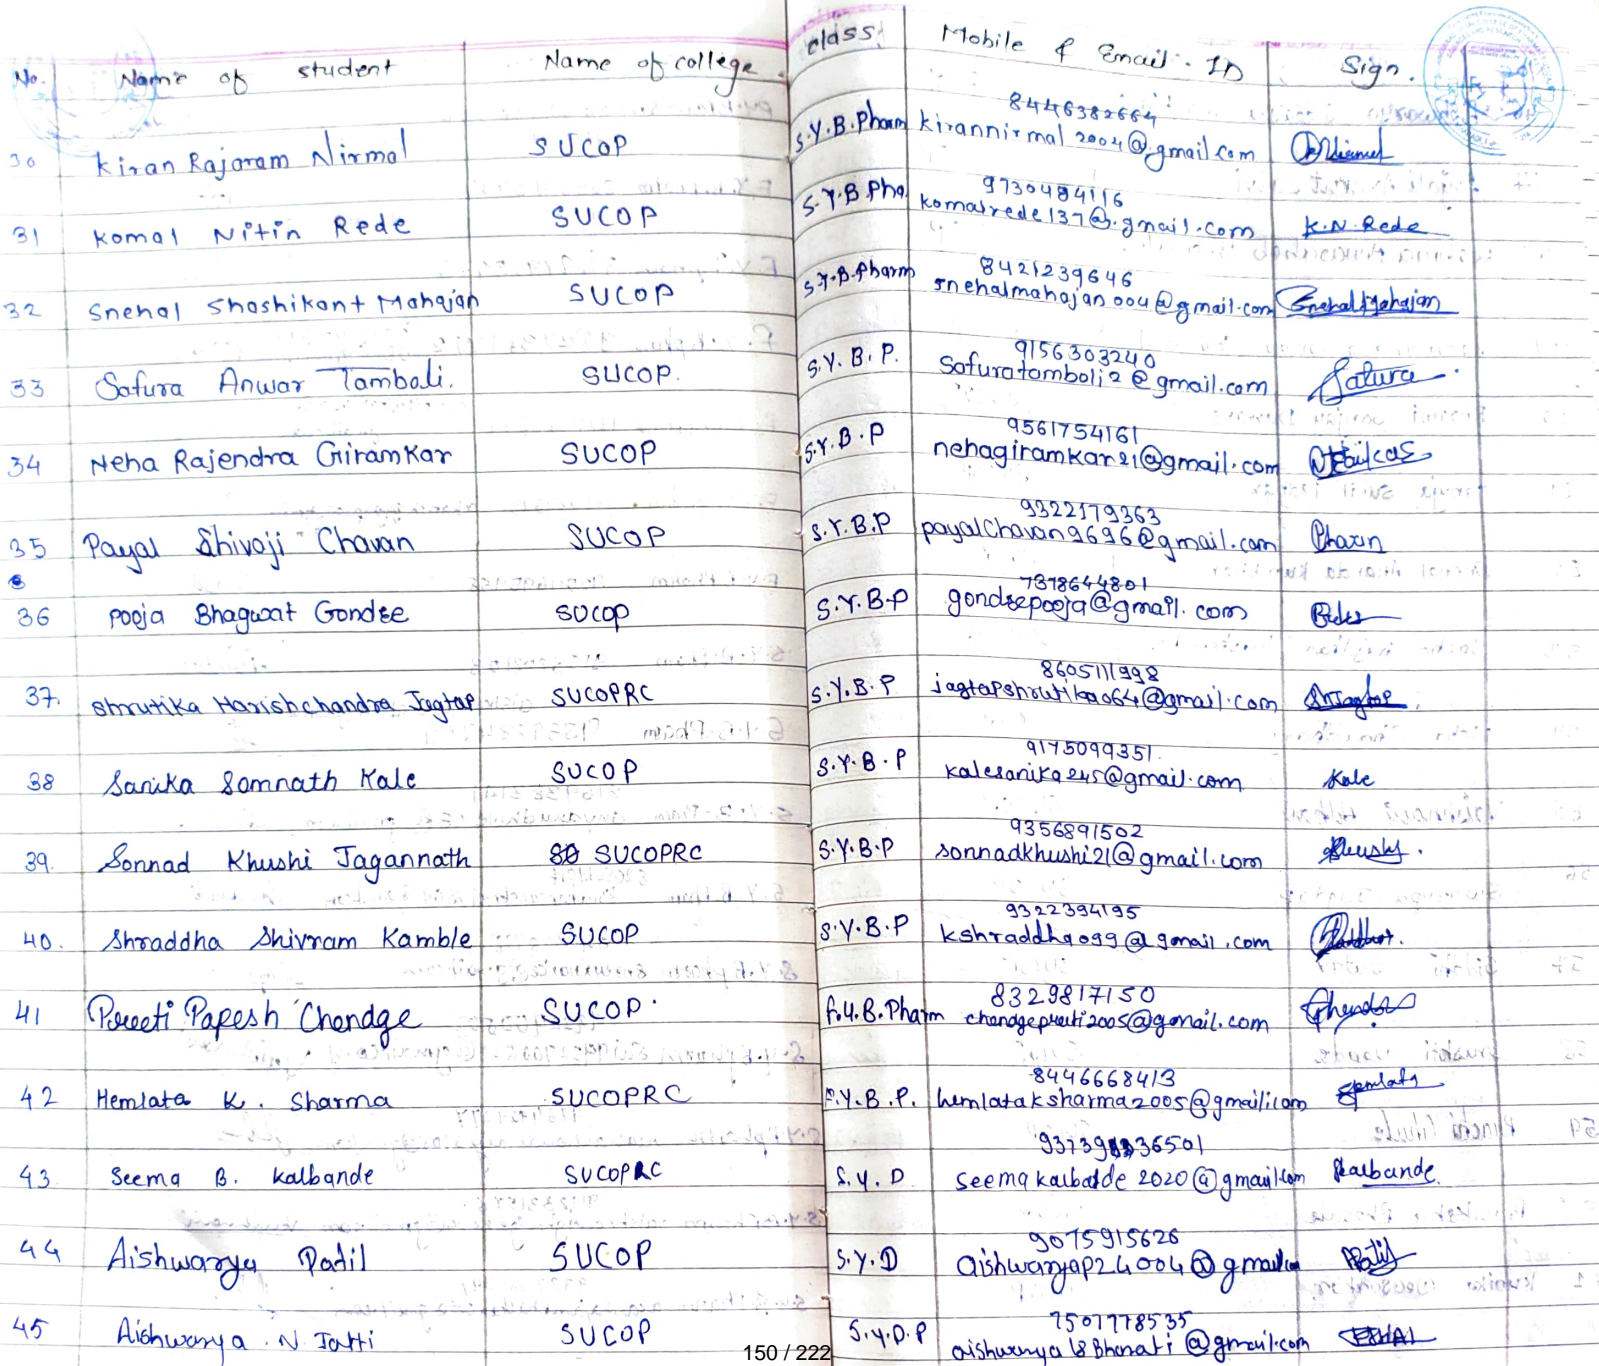 No. Name of student Name of college class Mobile & Email. ID Sign.
30 Kiran Rajaram Nirmal SUCOP S.Y.B.Pharm 8446382664 kirannirmal2004@gmail.com
31 Komal Nitin Rede SUCOP S.Y.B.Pha 9730484116 komalrede137@.gmail.com K.N.Rede
32 Snehal Shashikant Mahajan SUCOP S.Y.B.Pharm 8421239646 snehalmahajan004@gmail.com SnehalMahajan
33 Safura Anwar Tamboli. SUCOP. S.Y.B.P. 9156303240 Safuratamboli2@gmail.com Safura
34 Neha Rajendra Giramkar SUCOP S.Y.B.P 9561754161 nehagiramkar21@gmail.com
35 Payal Shivaji Chavan SUCOP S.Y.B.P 9322179363 payalChavan9696@gmail.com
36 Pooja Bhagwat Gondse SUCOP S.Y.B.P 7378644801 gondsepooja@gmail.com
37. Shrutika Harishchandra Jagtap SUCOPRC S.Y.B.P 8605111998 jagtapshrutika064@gmail.com
38 Sanika Somnath Kale SUCOP S.Y.B.P 9175099351. kalesanika245@gmail.com Kale
39. Sonnad Khushi Jagannath SUCOPRC S.Y.B.P 9356891502 sonnadkhushi21@gmail.com
40. Shraddha Shivram Kamble SUCOP S.Y.B.P 9322394195 kshraddha099@gmail.com
41 Preeti Papesh Chendge SUCOP. F.Y.B.Pharm 8329817150 chendgepreeti2005@gmail.com
42 Hemlata K. Sharma SUCOPRC F.Y.B.P. 8446668413 hemlataksharma2005@gmail.com Hemlata
43. Seema B. Kalbande SUCOPRC S.Y.D seemakalbande2020@gmail.com Kalbande.
44 Aishwarya Patil SUCOP S.Y.D 9075915626 aishwaryap24004@gmail.com Patil
45 Aishwarya .N. Jatti SUCOP S.Y.D.P 7507778535 @gmail.com
150 / 222